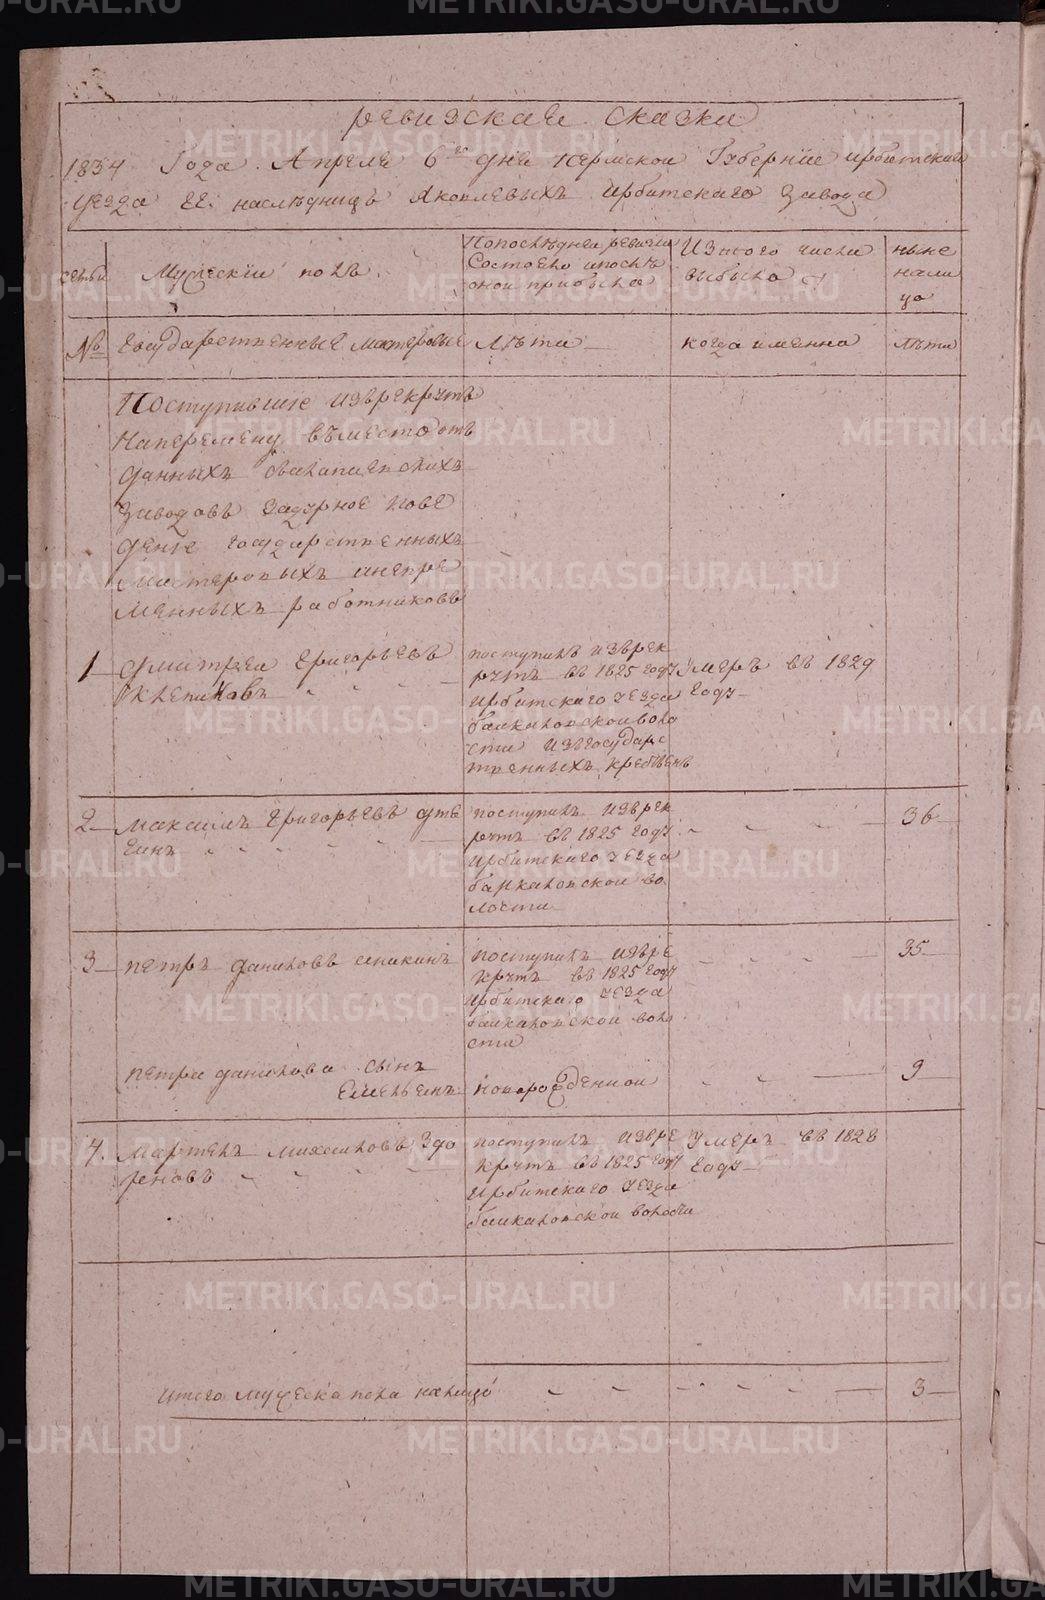 ревизская сказка
1834 Года Апреля 6го дня Пермской Губернiи ирбитского
уезда ГГ: наследницъ Яковлевыхъ ирбитскаго завода
семьи
Мужескiй полъ
По последней ревизiи
Состояло и после
оной прибыло
Изъ того числа
выбыло
ныне
на ли
цо
№
Государственные мастеровые
лета
когда именно
лета
Поступившiе изърекрутъ
наперемену въместо от
данныхъ
заводовъ задурное пове
денiе государственныхъ
мастеровыхъ инепре
менныхъ работниковъ
1
Дмитрей Григорьевъ
поступилъ изърек
рутъ въ 1825 году
ирбитскаго уезда
волo
сти изъгосударс
твенныхъ крестьянъ
умеръ въ 1829
году
2
Максимъ Григорьевъ
поступилъ изърек
рутъ въ 1825 году
ирбитскаго уезда
во
лости
36
3
петръ даниловъ
поступилъ изъре
крутъ въ 1825 году
ирбитскаго уезда
воло
сти
35
петра данилова сынъ
Емельянъ
новорожденной
9
4.
михайловъ
поступилъ изъре
крутъ въ 1825 году
ирбитскаго уезда
волости
Умеръ въ 1828
году
итого мужеска пола налицо
3
METRIKI.GASO-URAL.RU